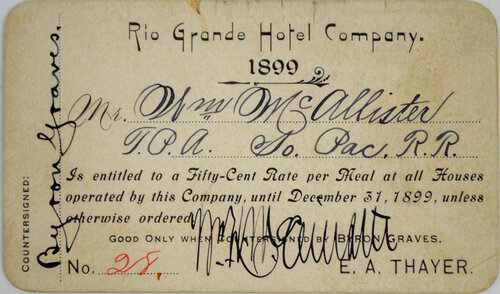 Rio Grande Hotel Company.
1899
Mr. Wm McAllister
T.P.A. So. Pac. R.R.
Is entitled to a Fifty-Cent Rate per Meal at all Houses
operated by this Company, until December 31, 1899, unless
otherwise ordered.
GOOD ONLY WHEN COUNTERSIGNED BY BYRON GRAVES.
No. 28. E. A. THAYER.
COUNTERSIGNED:
Byron Graves.